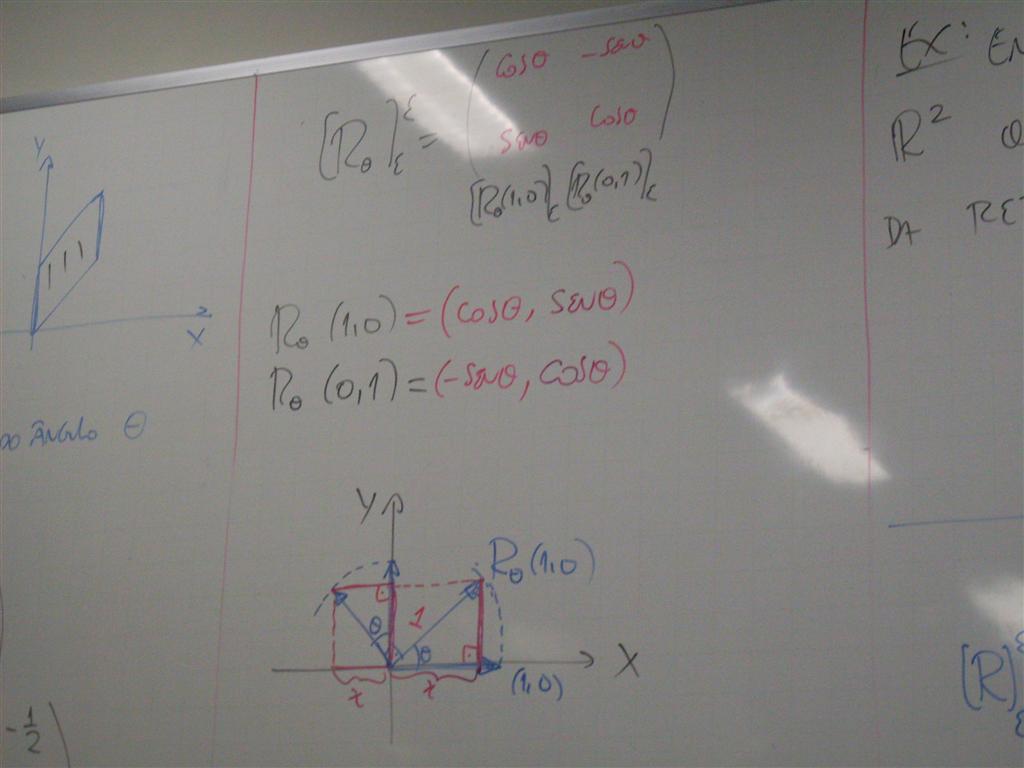 Y
X
DO ÂNGULO θ
-1/2
[R_θ]^ε_ε = ( cosθ -senθ
senθ cosθ )
[R_θ(1,0)]_ε [R_θ(0,1)]_ε
R_θ (1,0) = (cosθ, senθ)
R_θ (0,1) = (-senθ, cosθ)
Y
R_θ(1,0)
θ 1 θ
X
(1,0)
EX: EM
ℝ²
DA RET
[R]^ε_ε